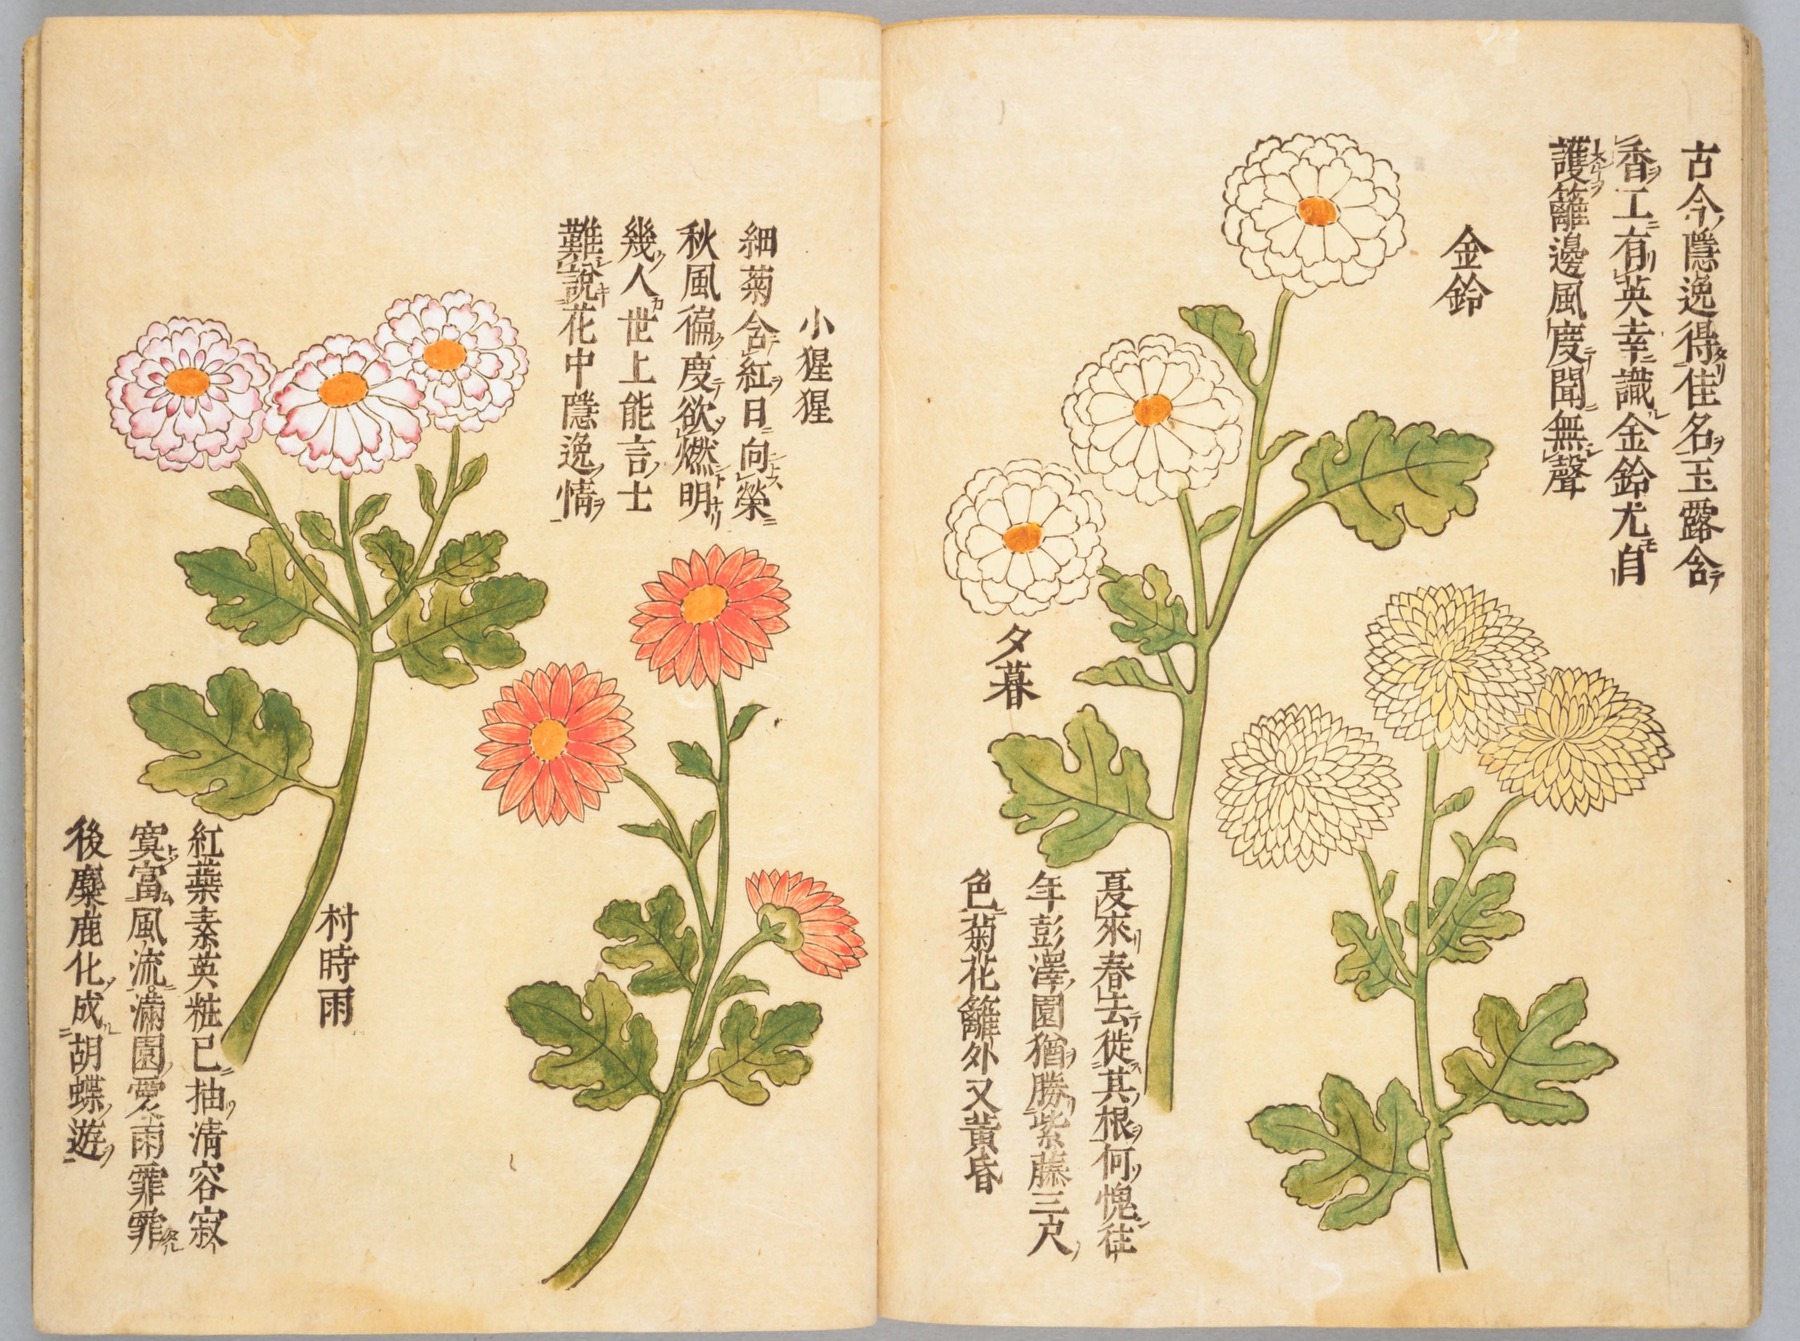 金鈴
古今隱逸得佳名玉露含
香工有英幸識金鈴尤自
護籬邊風度聞無聲
夕暮
夏來春去徙其根何愧往
年彭澤園猶勝紫藤三尺
色菊花籬外又黄昏
小猩猩
細菊含紅日向榮
秋風徧度欲燃明
幾人世上能言士
難說花中隱逸情
村時雨
紅蘂素英粧已抽清容寂
寞富風流滿園愛雨霏霏
後麋鹿化成胡蝶遊